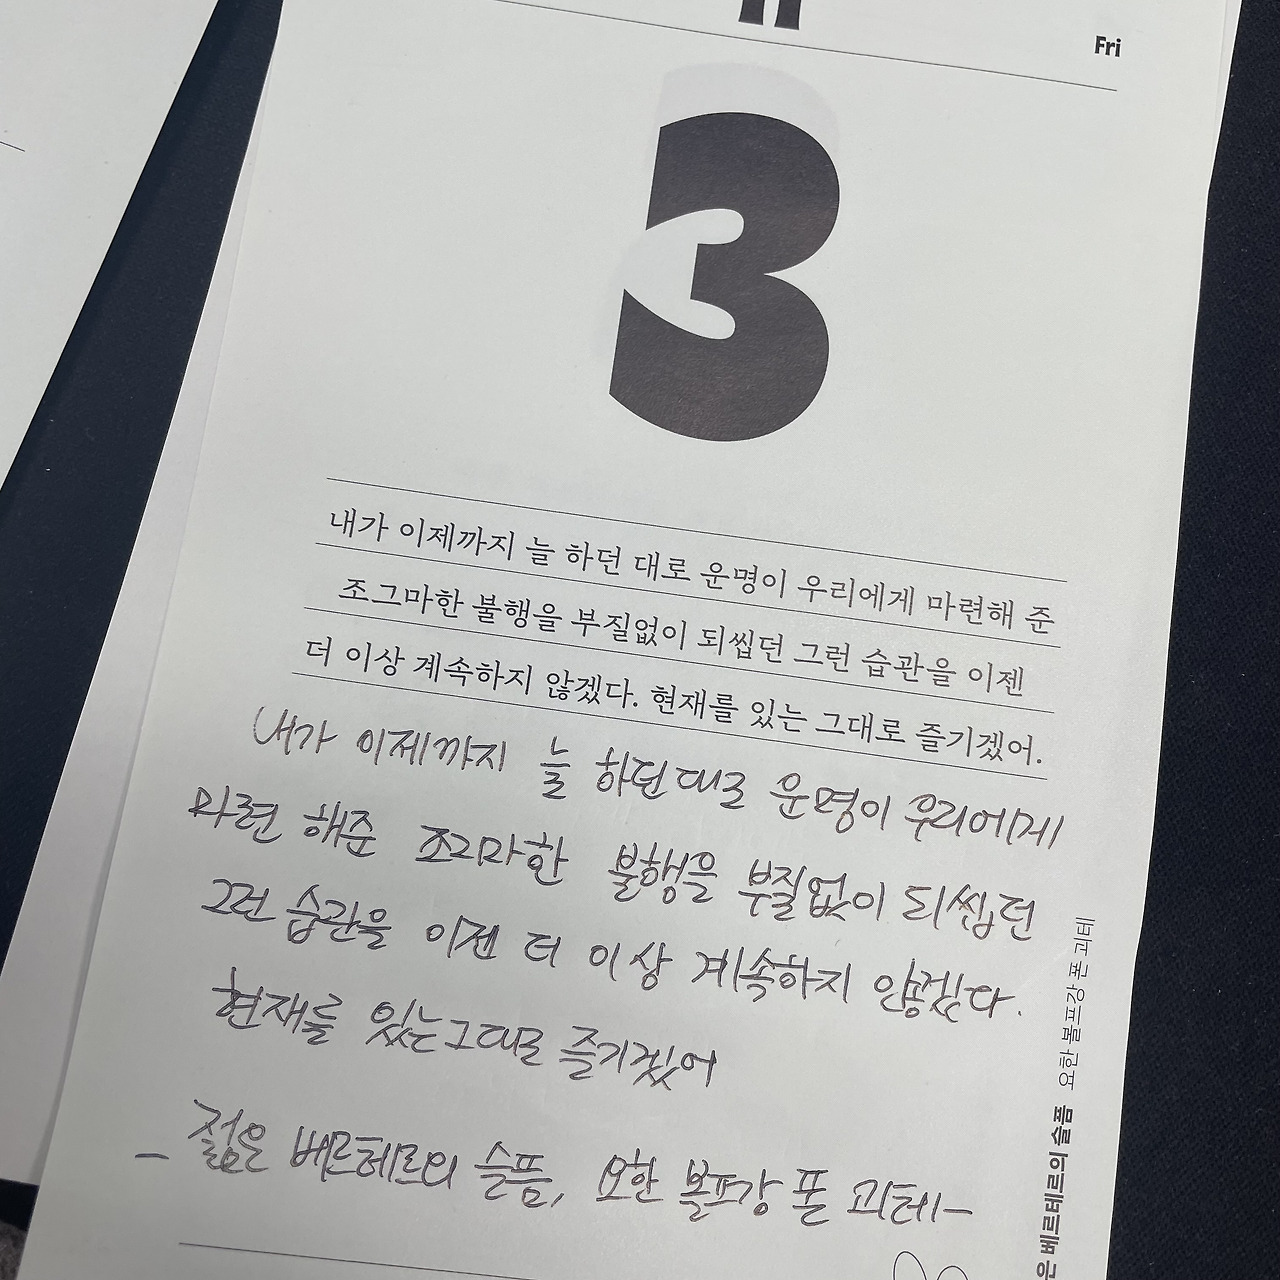 Fri
3
내가 이제까지 늘 하던 대로 운명이 우리에게 마련해 준
조그마한 불행을 부질없이 되씹던 그런 습관을 이젠
더 이상 계속하지 않겠다. 현재를 있는 그대로 즐기겠어.
내가 이제까지 늘 하던대로 운명이 우리에게
마련 해준 조그마한 불행을 부질없이 되씹던
그런 습관을 이젠 더 이상 계속하지 않겠다.
현재를 있는 그대로 즐기겠어
- 젊은 베르테르의 슬픔, 요한 볼프강 폰 괴테-
은 베르테르의 슬픔 요한 볼프강 폰 괴테